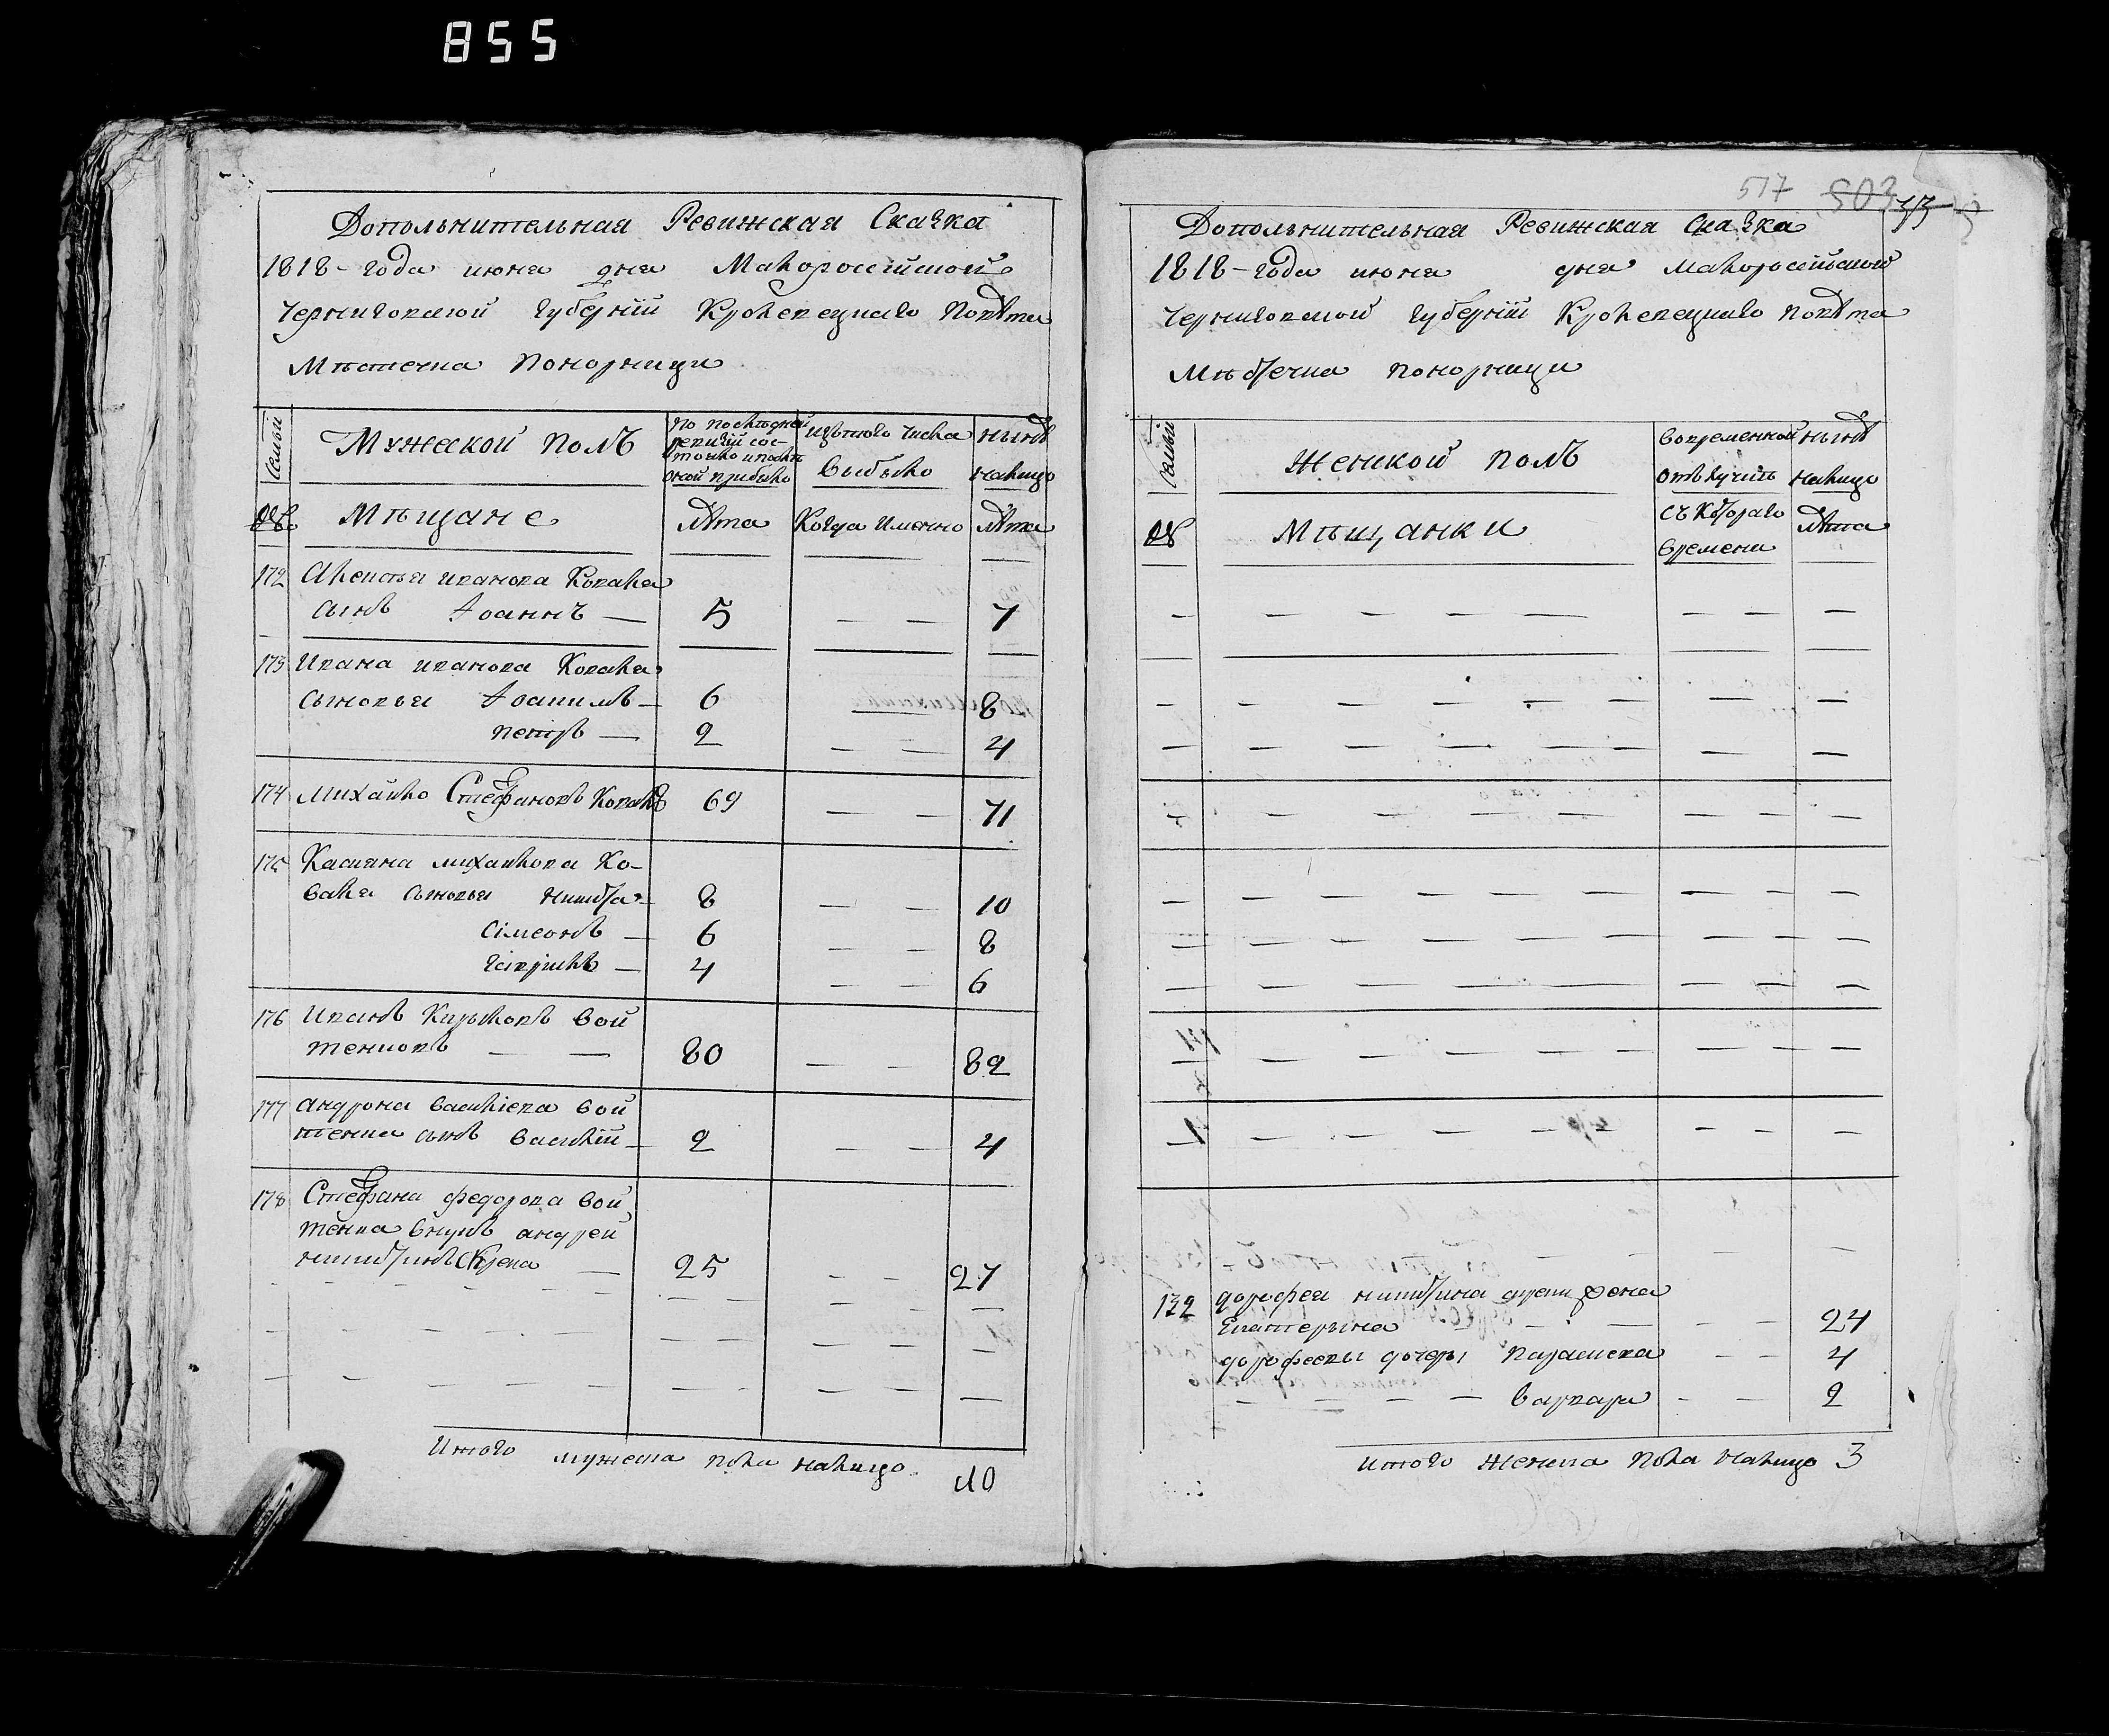 855
Дополнительная Ревижская Сказка
1818-года июня дня Малороссійской
Черниговской Губерніи Кролевецкаго Повѣта
Мѣстечка Понорницы
Семьи
Мужеской полъ
По послѣдней ревизіи состояло и послѣ оной прибыло
Изъ того числа выбыло
Нынѣ налицо
№
Мѣщане
Лѣта
Когда Именно
Лѣта
172 Алексѣя Иванова Коваля
сынъ Іоаннъ — 5 — — 7
173 Ивана Иванова Коваля
сыновья Іоакимъ — 6 8
Петръ — 2 — — 4
174 Михайло Стефановъ Коваль 69 — — 71
175 Касьяна Михайлова Ко-
валя сыновья Никита — 8 — — 10
Сімеонъ — 6 — — 8
Гавріилъ — 4 — — 6
176 Иванъ Кириловъ Вой
тенковъ — — 80 — — 82
177 Андрона Васильева Вой
тенка сынъ Василій — 2 — — 4
178 Стефана Федорова Вой
тенка внукъ Андрей
Никитинъ — 25 — — 27
Итого мужеска пола налицо 10
517 503
Дополнительная Ревижская Сказка
1818-года июня дня Малороссійской
Черниговской Губерніи Кролевецкаго Повѣта
Мѣстечка Понорницы
Семьи
Женской полъ
Во временной отлучкѣ
Нынѣ налицо
№
Мѣщанки
Съ котораго времени
Лѣта
132 Дорофея Никитина жена
Екатерина — — — — 24
Дорофеевы дочери Параскева — — 4
Варвара — — 2
Итого Женска Пола Налицо 3